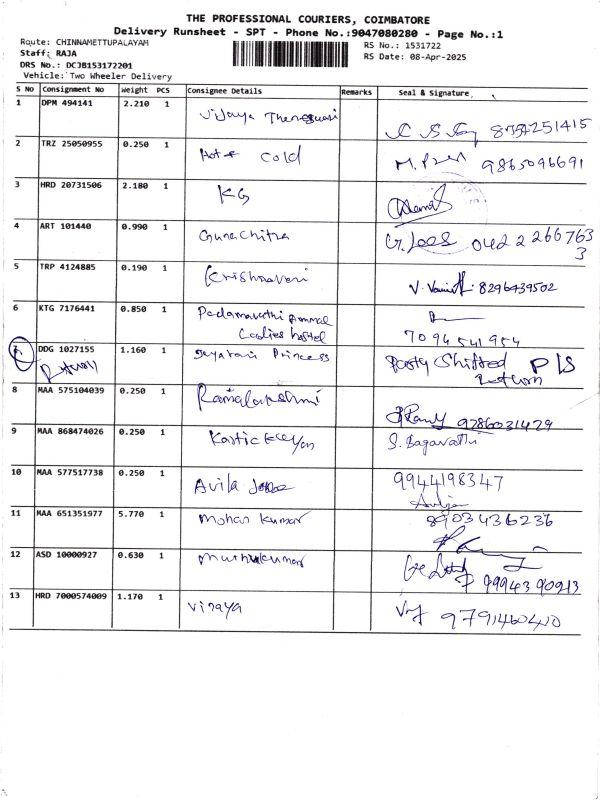 THE PROFESSIONAL COURIERS, COIMBATORE
Delivery Runsheet - SPT - Phone No.:9047080280 - Page No.:1
Route: CHINNAMETTUPALAYAM
RS No.: 1531722
Staff: RAJA
RS Date: 08-Apr-2025
DRS No.: DCJB153172201
Vehicle: Two Wheeler Delivery
S No Consignment No Weight PCS Consignee Details Remarks Seal & Signature
1 DPM 494141 2.210 1 Vijaya 8754251415
2 TRZ 25050955 0.250 1 Hot & Cold 9865096691
3 HRD 20731506 2.180 1 KG
4 ART 101440 0.990 1 Gunachitra 0422 2667633
5 TRP 4124885 0.190 1 Krishnaveni V. 8296439502
6 KTG 7176441 0.850 1 Padamavathi Ammal
Ladies hostel 7094541954
7 DDG 1027155 1.160 1 Gayatari Princess Party Shifted Pls
Return Return
8 MAA 575104039 0.250 1 Ramalakshmi 9786031429
9 MAA 868474026 0.250 1 S. Bagavathi
10 MAA 577517738 0.250 1 Avila 9944198347
11 MAA 651351977 5.770 1 Mohan Kumar 8903436236
12 ASD 10000927 0.630 1 Muthukumar 9994390913
13 HRD 7000574009 1.170 1 Vijaya 9791460410